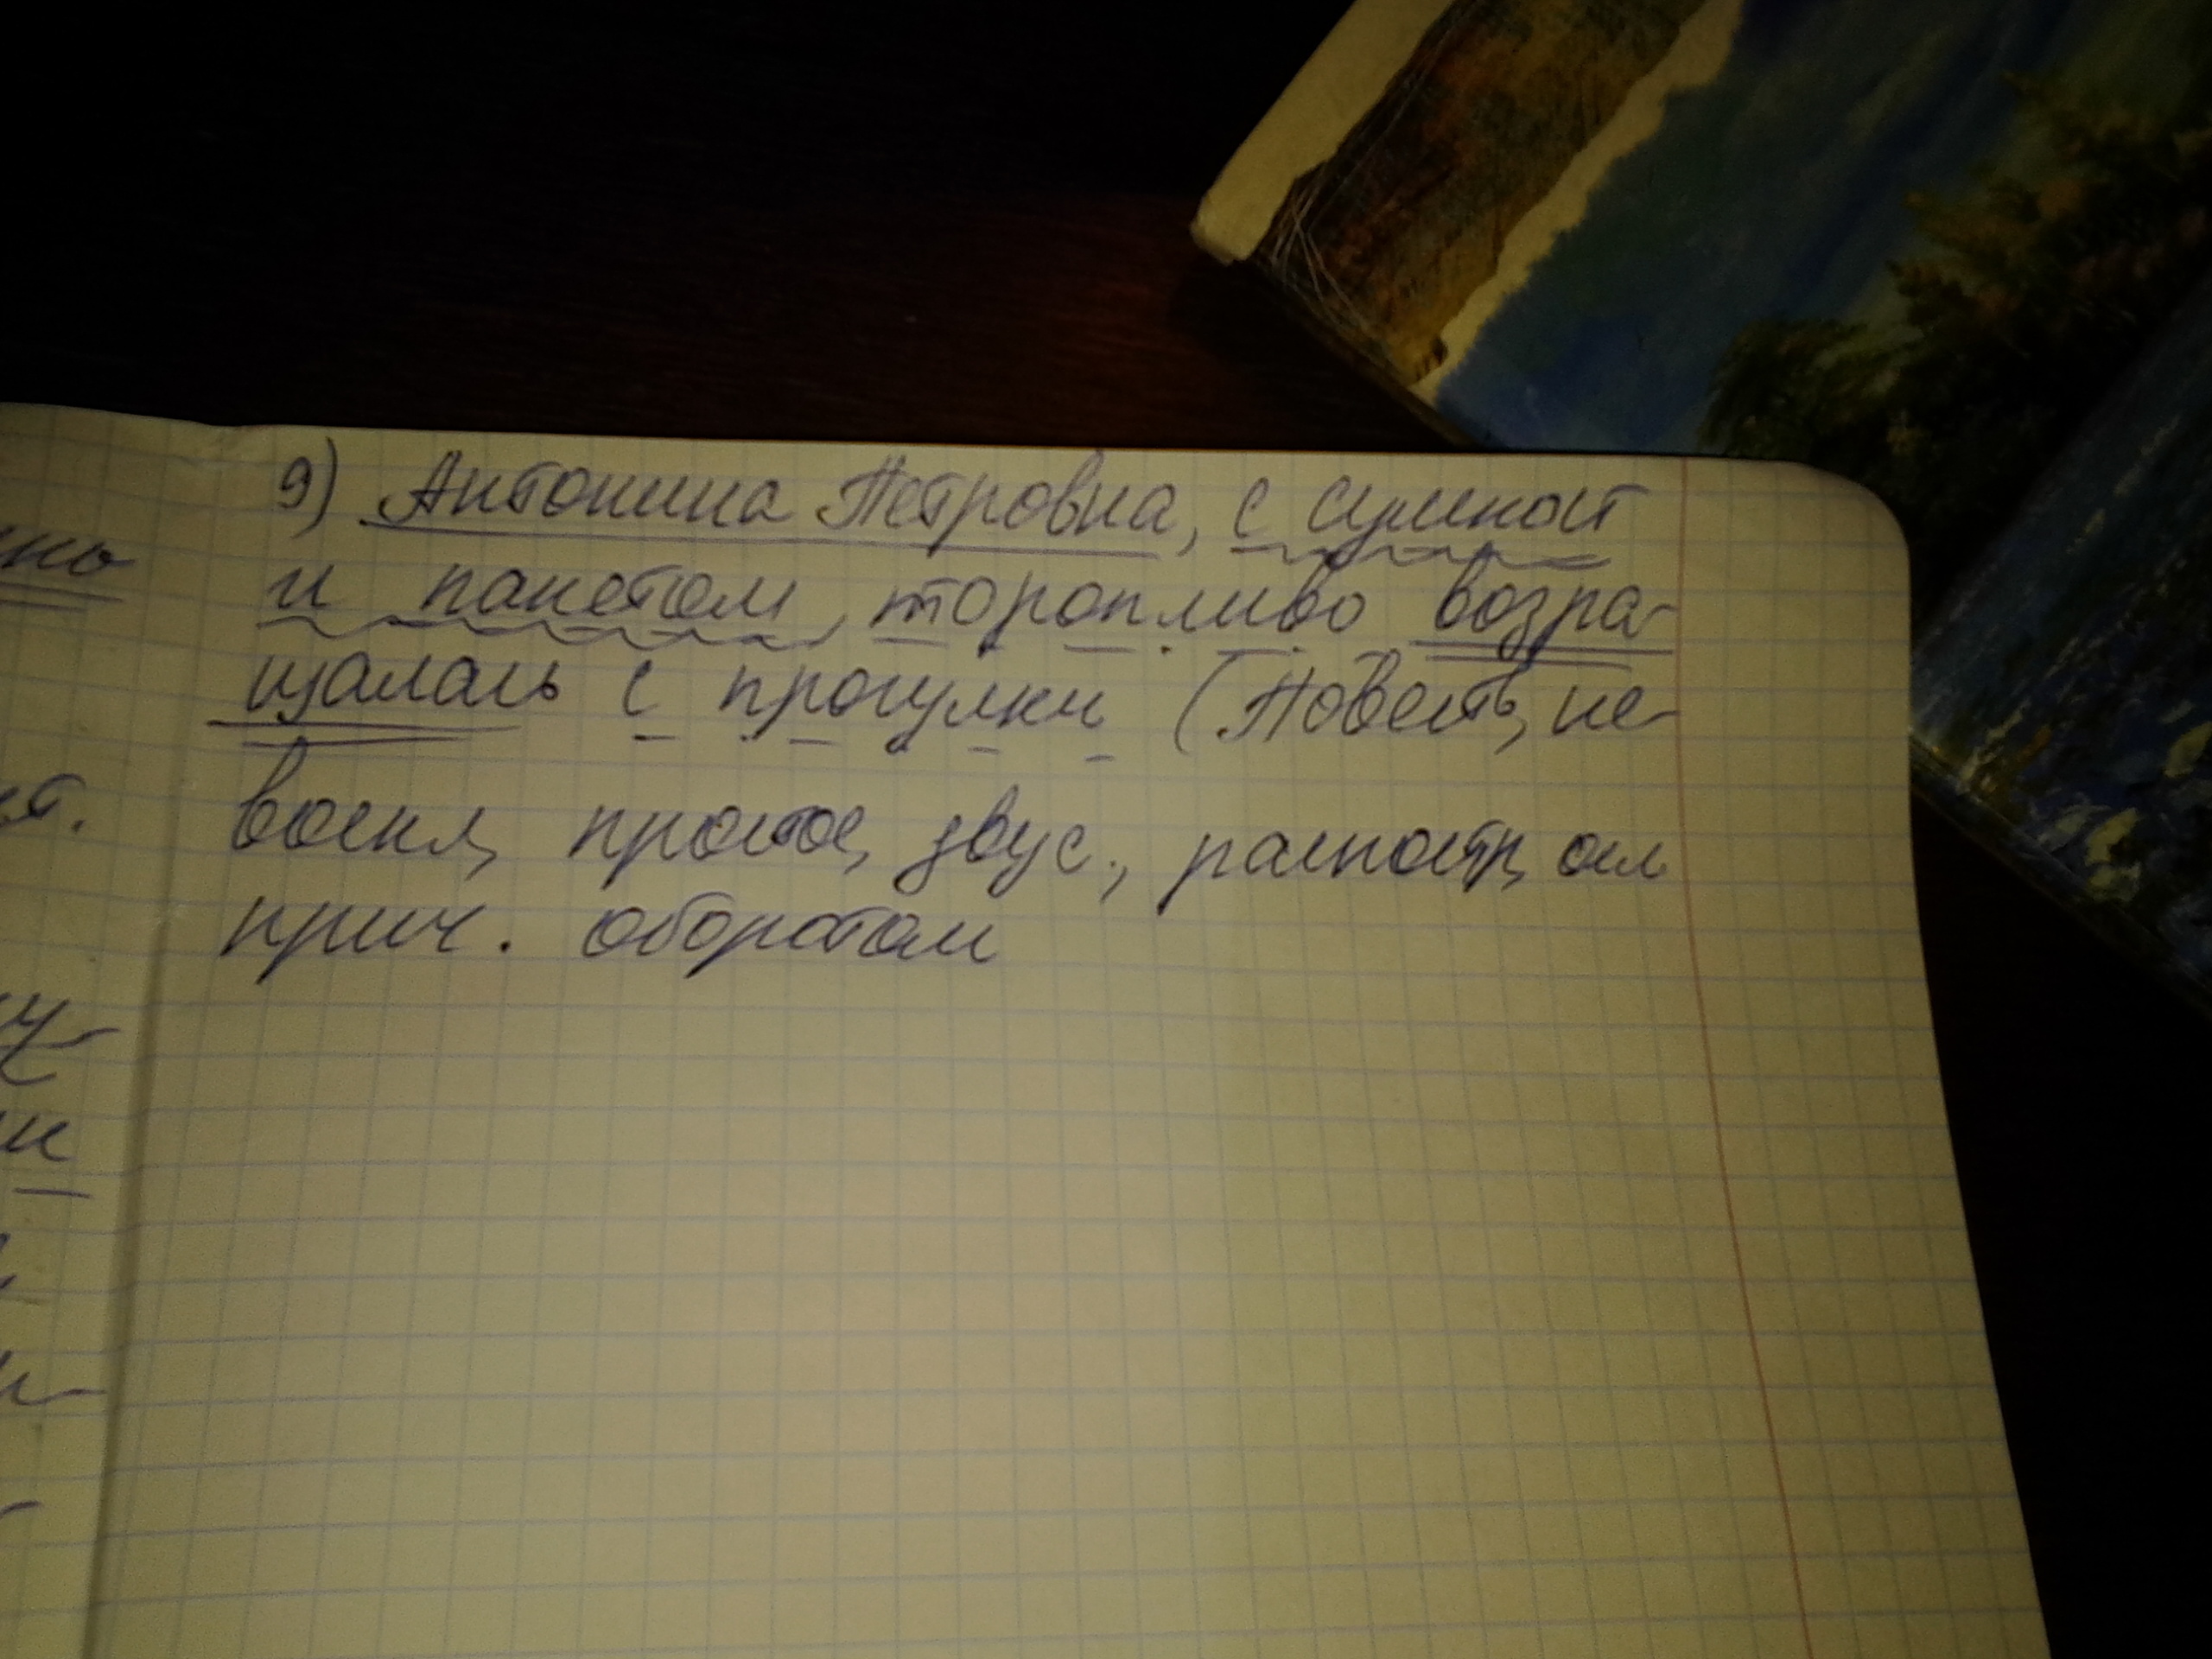 9) Антонина Петровна, с сумкой
и пакетом, торопливо возра-
щалась с прогулки (Повеств, не-
воскл, простое, двус., распостр, осл
прич. оборотом
но
ет.